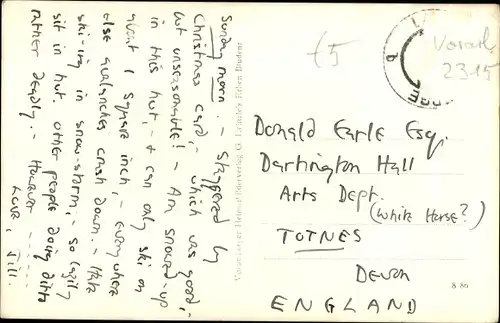 Sunday morn. - Staggered by
Christmas card, - which was good,-
but unseasonable! - Am snowed-up
in this hut, - & can only ski on
about 1 square inch, - everywhere
else avalanches crash down. - Hate
ski-ing in snow-storm, - so lazily
sit in hut. Other people doing ditto
rather deadly. - However -----
Love, Jill.
£5
Vorarlb
2315
Donald Earle Esq.
Dartington Hall
Arts Dept.
(White Horse?)
TOTNES
Devon
ENGLAND
8 86